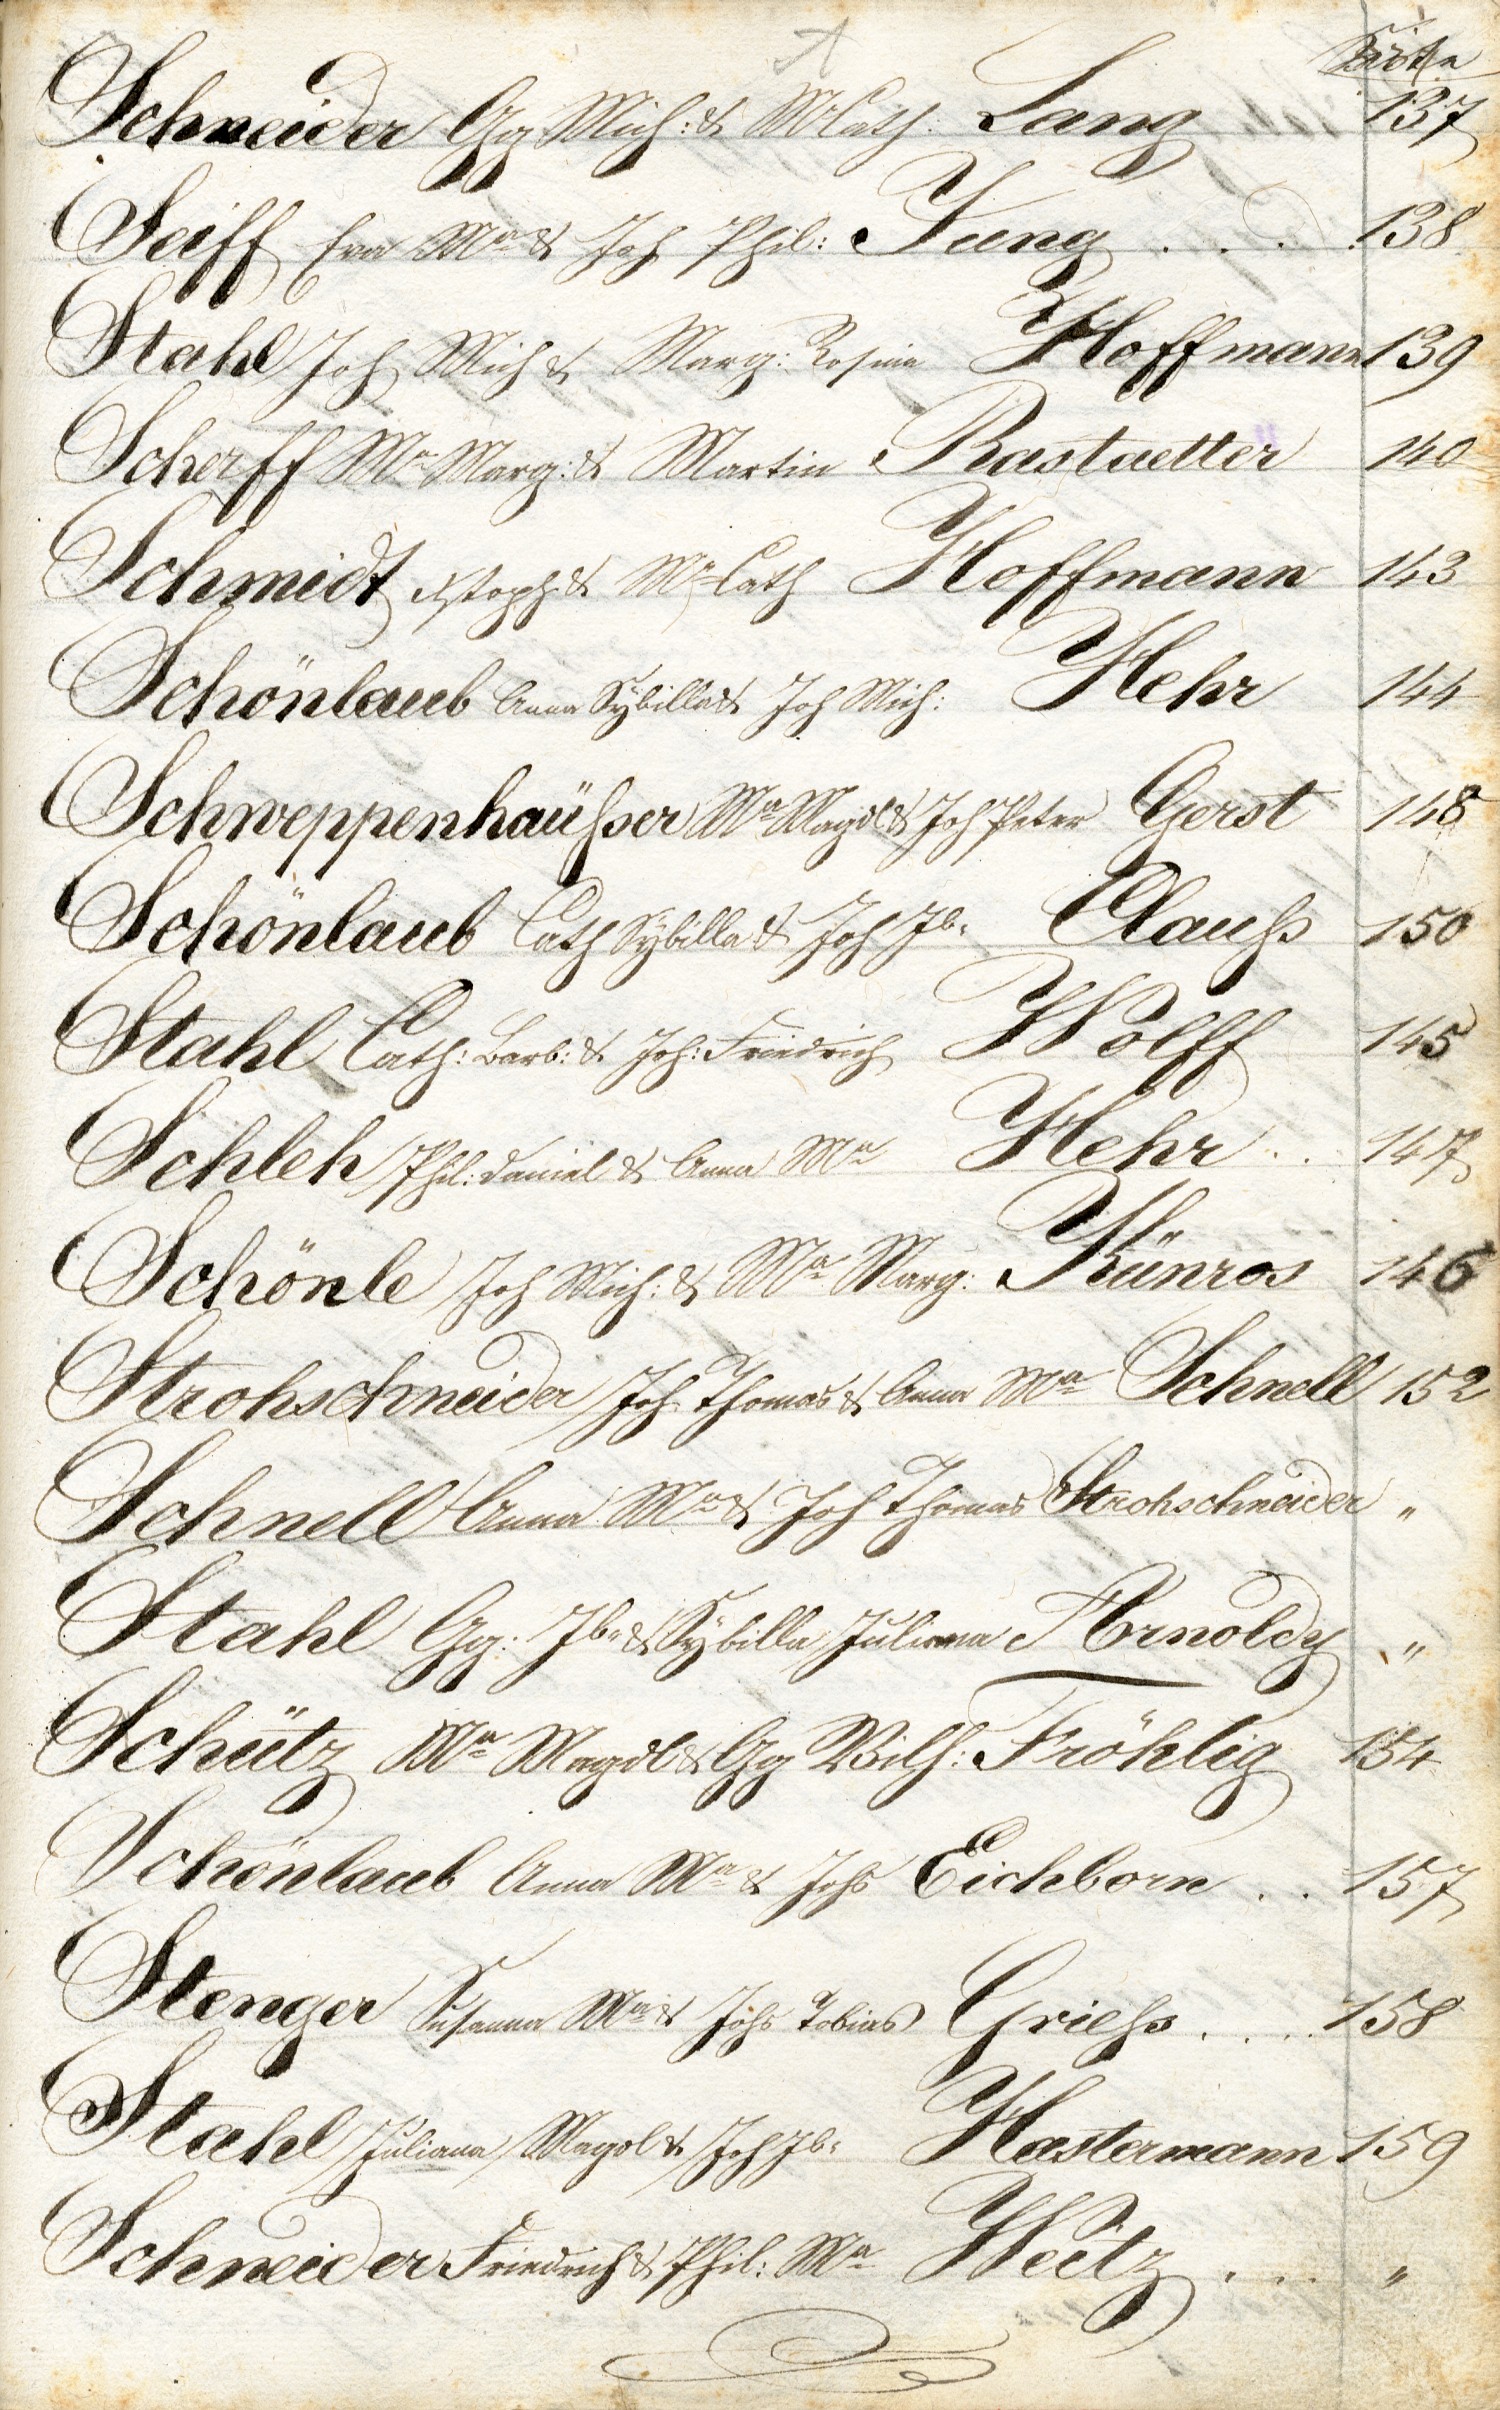 Seite
Schneider Gg Mich: & M Cath: Lang 137
Seiff Eva Ma & Joh Phil: Jung . . . . 138
Stahl Joh Mich & Marg: Rosina Hoffmann 139
Scherff Ma Marg: & Martin Rastaetter 140
Schmidt Xstoph & Ma Cath Hoffmann 143
Schönlaub Anna Sÿbilla & Joh Mich: Hehr 144
Schweppenhaüßer Ma Magdl & Joh Peter Gerst 148
Schönlaub Cath Sÿbilla & Joh Jb: Clauß 150
Stahl Cath: Barb: & Joh: Friedrich Wolff 145
Schleh Phil: Daniel & Anna Ma Hehr . . 147
Schönle Joh Mich: & Ma Marg: Künros 146
Strohschneider Joh Thomas & Anna Ma Schnell 152
Schnell Anna Ma & Joh Thomas Strohschneider "
Stahl Gg: Jb: & Sÿbilla Juliana Arnoldy "
Schütz Ma Magdl & Gg Wilh: Fröhlig 154
Schönlaub Anna Ma & Johs Eichborn . . 157
Stenger Susanna Ma & Johs Tobias Grieß . . . . 158
Stahl Juliana Magdl & Joh Jb: Hastermann 159
Schneider Friedrich & Phil: Ma Weitz . . . . "